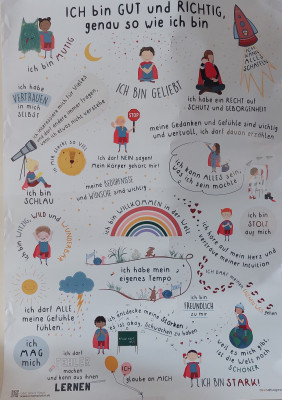 ICH bin GUT und RICHTIG,
genau so wie ich bin
ich bin MUTIG
ICH KANN
ALLES
SCHAFFEN
ich habe
VERTRAUEN
in mich
SELBST
ICH BIN GELIEBT
ich habe ein RECHT auf
SCHUTZ und GEBORGENHEIT
ich interessiere mich für Vieles
und darf andere immer fragen,
wenn ich etwas nicht verstehe
STOP
ich darf NEIN sagen!
Mein Körper gehört mir!
meine Gedanken und Gefühle sind wichtig
und wertvoll, ich darf davon erzählen
ich bin
SCHLAU
meine BEDÜRFNISSE
und WÜNSCHE sind wichtig
ich kann ALLES sein,
was ich sein möchte
ich bin WITZIG, WILD und WUNDERVOLL
ich bin WILLKOMMEN in der Welt
ich bin
STOLZ
auf mich
ich höre auf mein Herz und
vertraue meiner Intuition
ich habe mein
eigenes Tempo
ich darf ALLE
meine Gefühle
fühlen
ich bin
FREUNDLICH
zu mir
ich entdecke meine Stärken
es ist okay, Schwächen zu haben
ich
MAG
mich
ich darf
FEHLER
machen
und kann aus ihnen
LERNEN
ICH
glaube an MICH
weil es mich gibt,
ist die Welt noch
SCHÖNER
ICH BIN STARK!